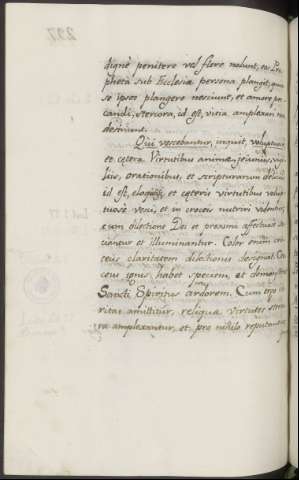 dignè penitere vel flere nolunt, eos Pro-
pheta sub Ecclesiæ persona plangit, quia
se ipsos plangere nesciunt, et amore pec-
candi, stercora, id est, vitia amplexari non
desinunt.
Qui vescebantur, inquit, voluptuose,
et cætera. Virtutibus animæ, jejuniis, vigi-
liis, orationibus, et scripturarum deliciis
id est, eloquiis, et cæteris virtutibus volup-
tuosè vesci, et in croceis nutriri videntur,
cum dilectione Dei et proximi affectuosè
et illuminantur. Color enim cro-
ceus claritatem dilectionis designat. Cro-
ceus ignis habet speciem, et demonstrat
Sancti Spiritus ardorem. Cum ergo
amittitur, reliquæ virtutes sterco-
ra amplexantur, et pro nihilo reputantur